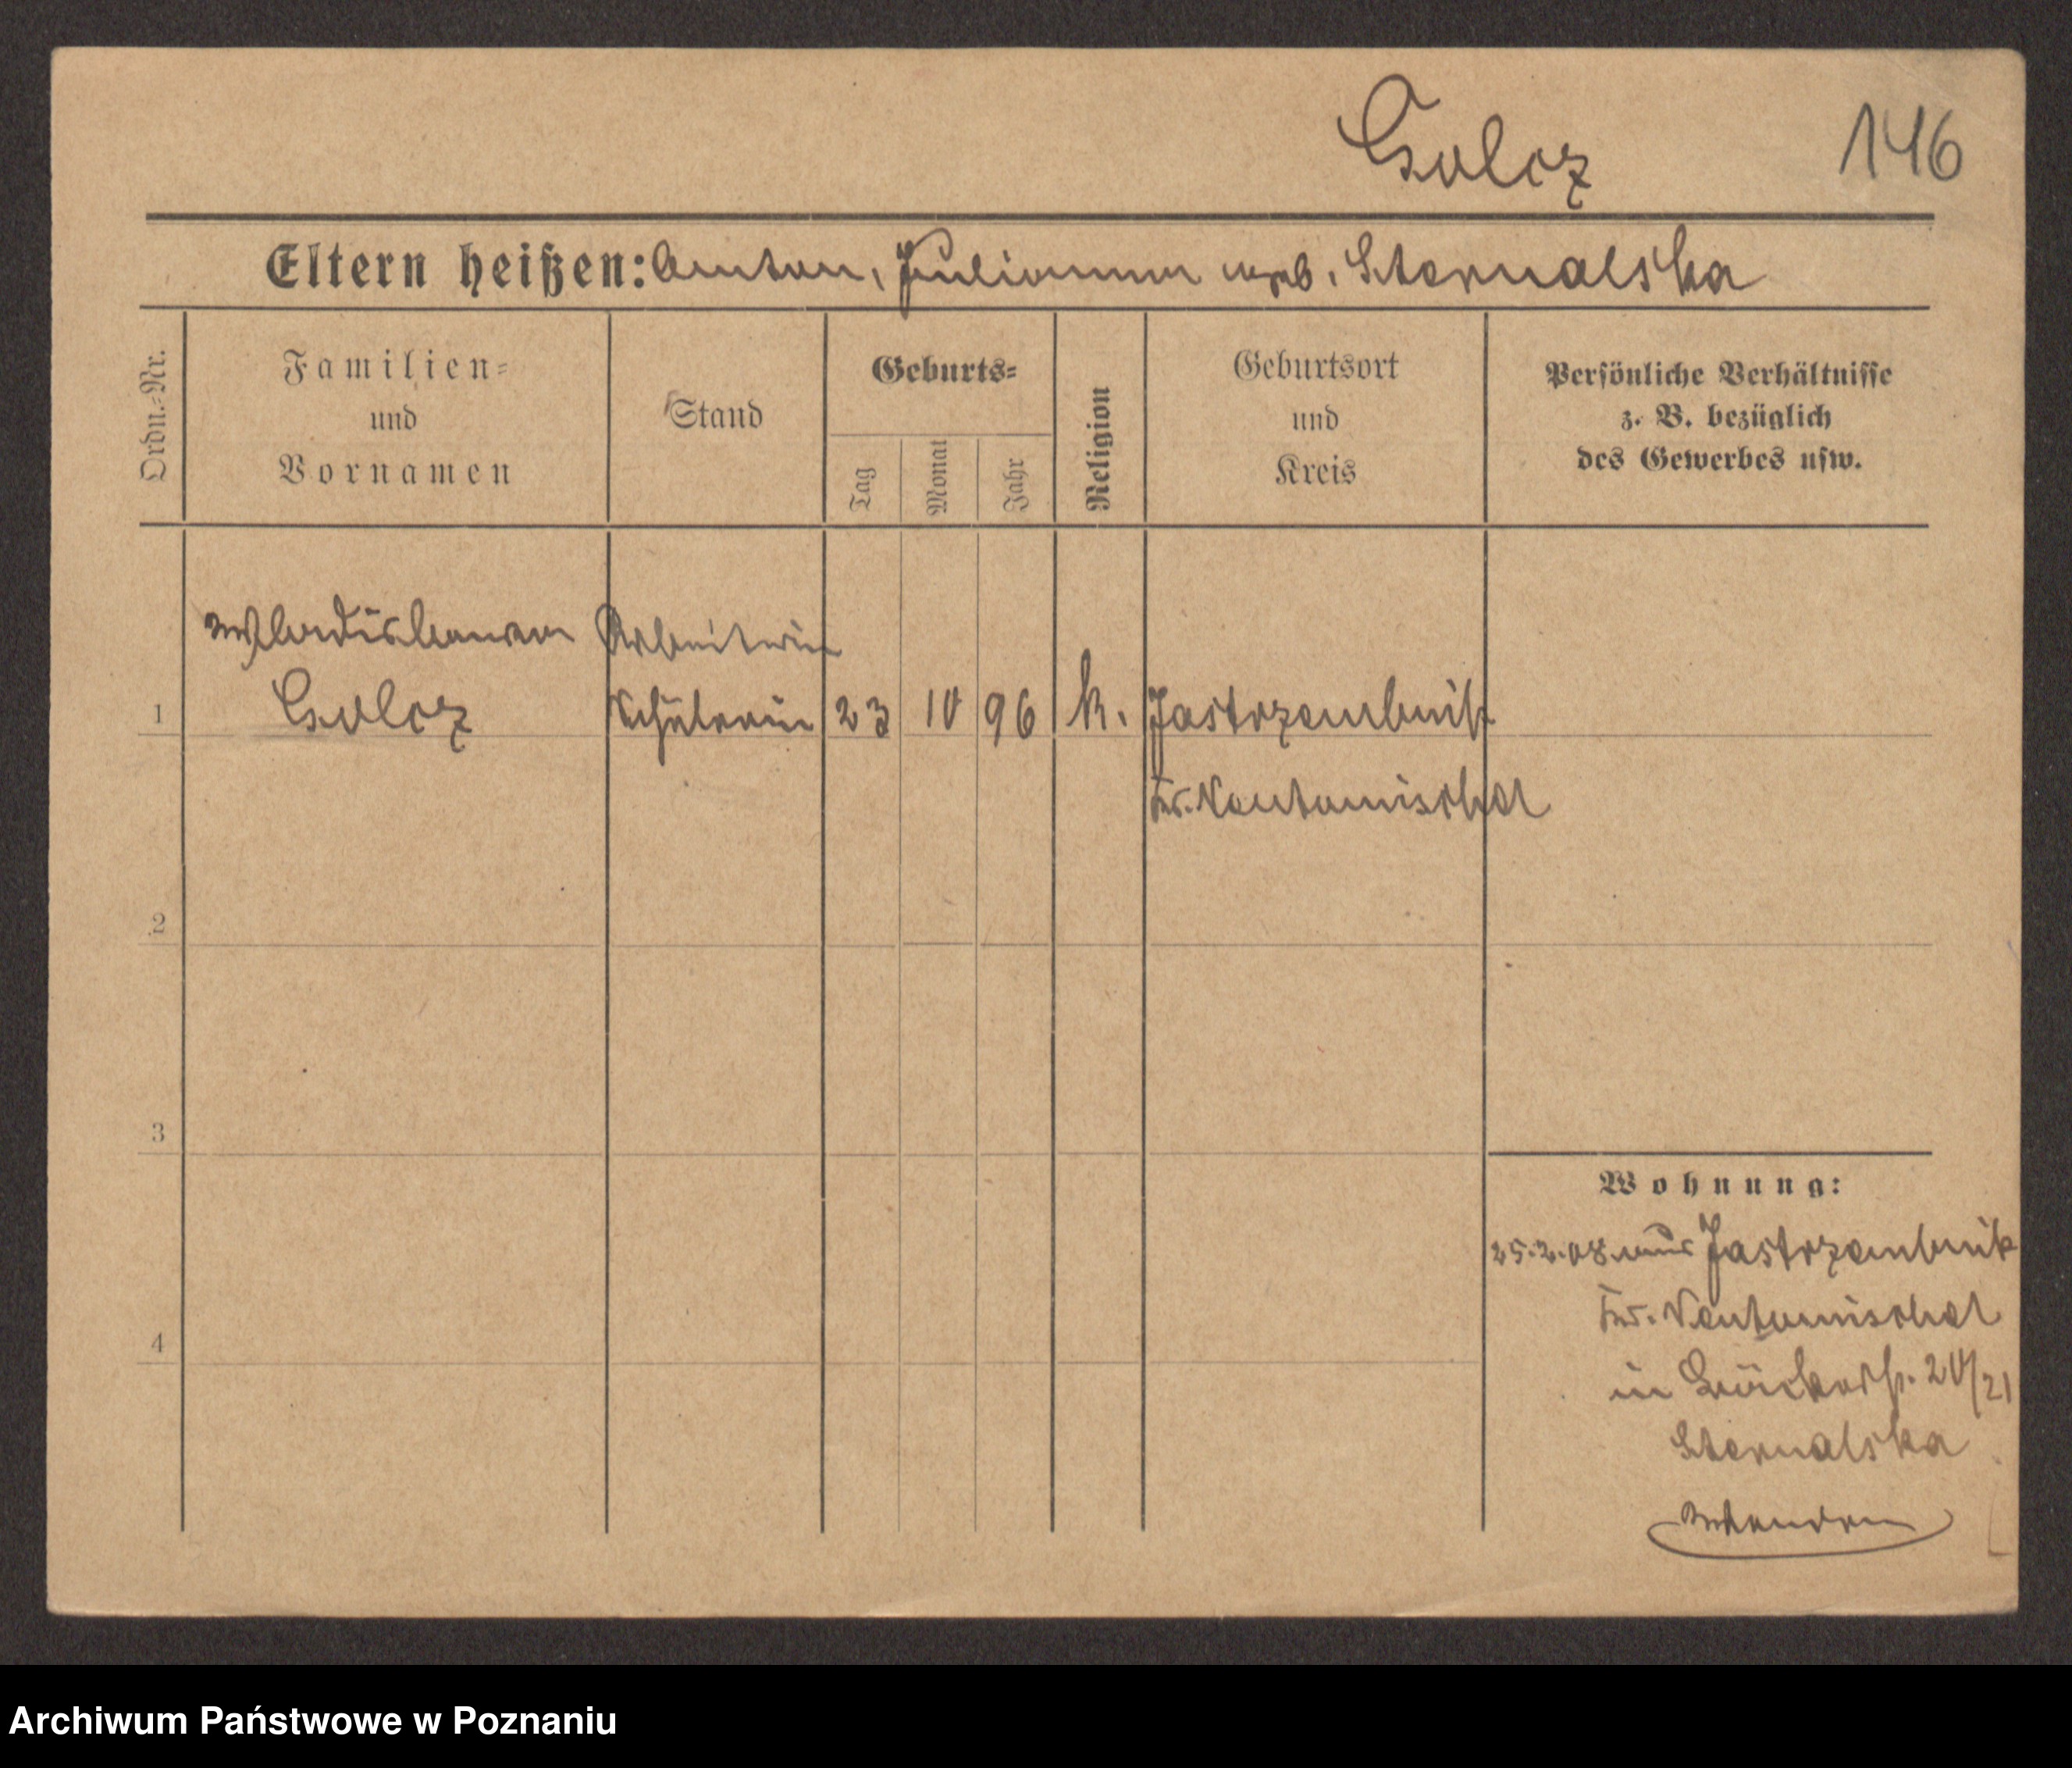 Golcz
146
Eltern heißen: Anton, Julianna geb. Sternalska
Ordn.=Nr.
Familien=
und
Vornamen
Stand
Geburts=
Tag
Monat
Jahr
Religion
Geburtsort
und
Kreis
Persönliche Verhältnisse
z. B. bezüglich
des Gewerbes usw.
Wladislawa Arbeiterin
1 Golcz Schülerin 23 10 96 k. Jastrzembnik
Kr. Neutomischel
2
3
4
Wohnung:
25.2.08 aus Jastrzembnik
Kr. Neutomischel
in 20/21
Sternalska
Archiwum Państwowe w Poznaniu